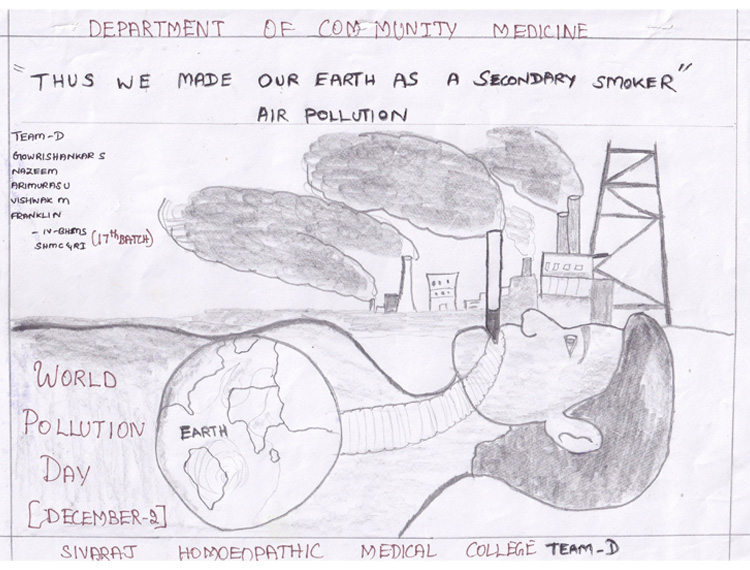 DEPARTMENT OF COMMUNITY MEDICINE
"THUS WE MADE OUR EARTH AS A SECONDARY SMOKER"
AIR POLLUTION
TEAM-D
GOWRISHANKAR S
NAZEEM
ARIMURASU
VISHWAK M
FRANKLIN
- IV-BHMS
SHMC&RI (17th BATCH)
EARTH
WORLD
POLLUTION
DAY
[DECEMBER-2]
SIVARAJ HOMOEOPATHIC MEDICAL COLLEGE TEAM-D